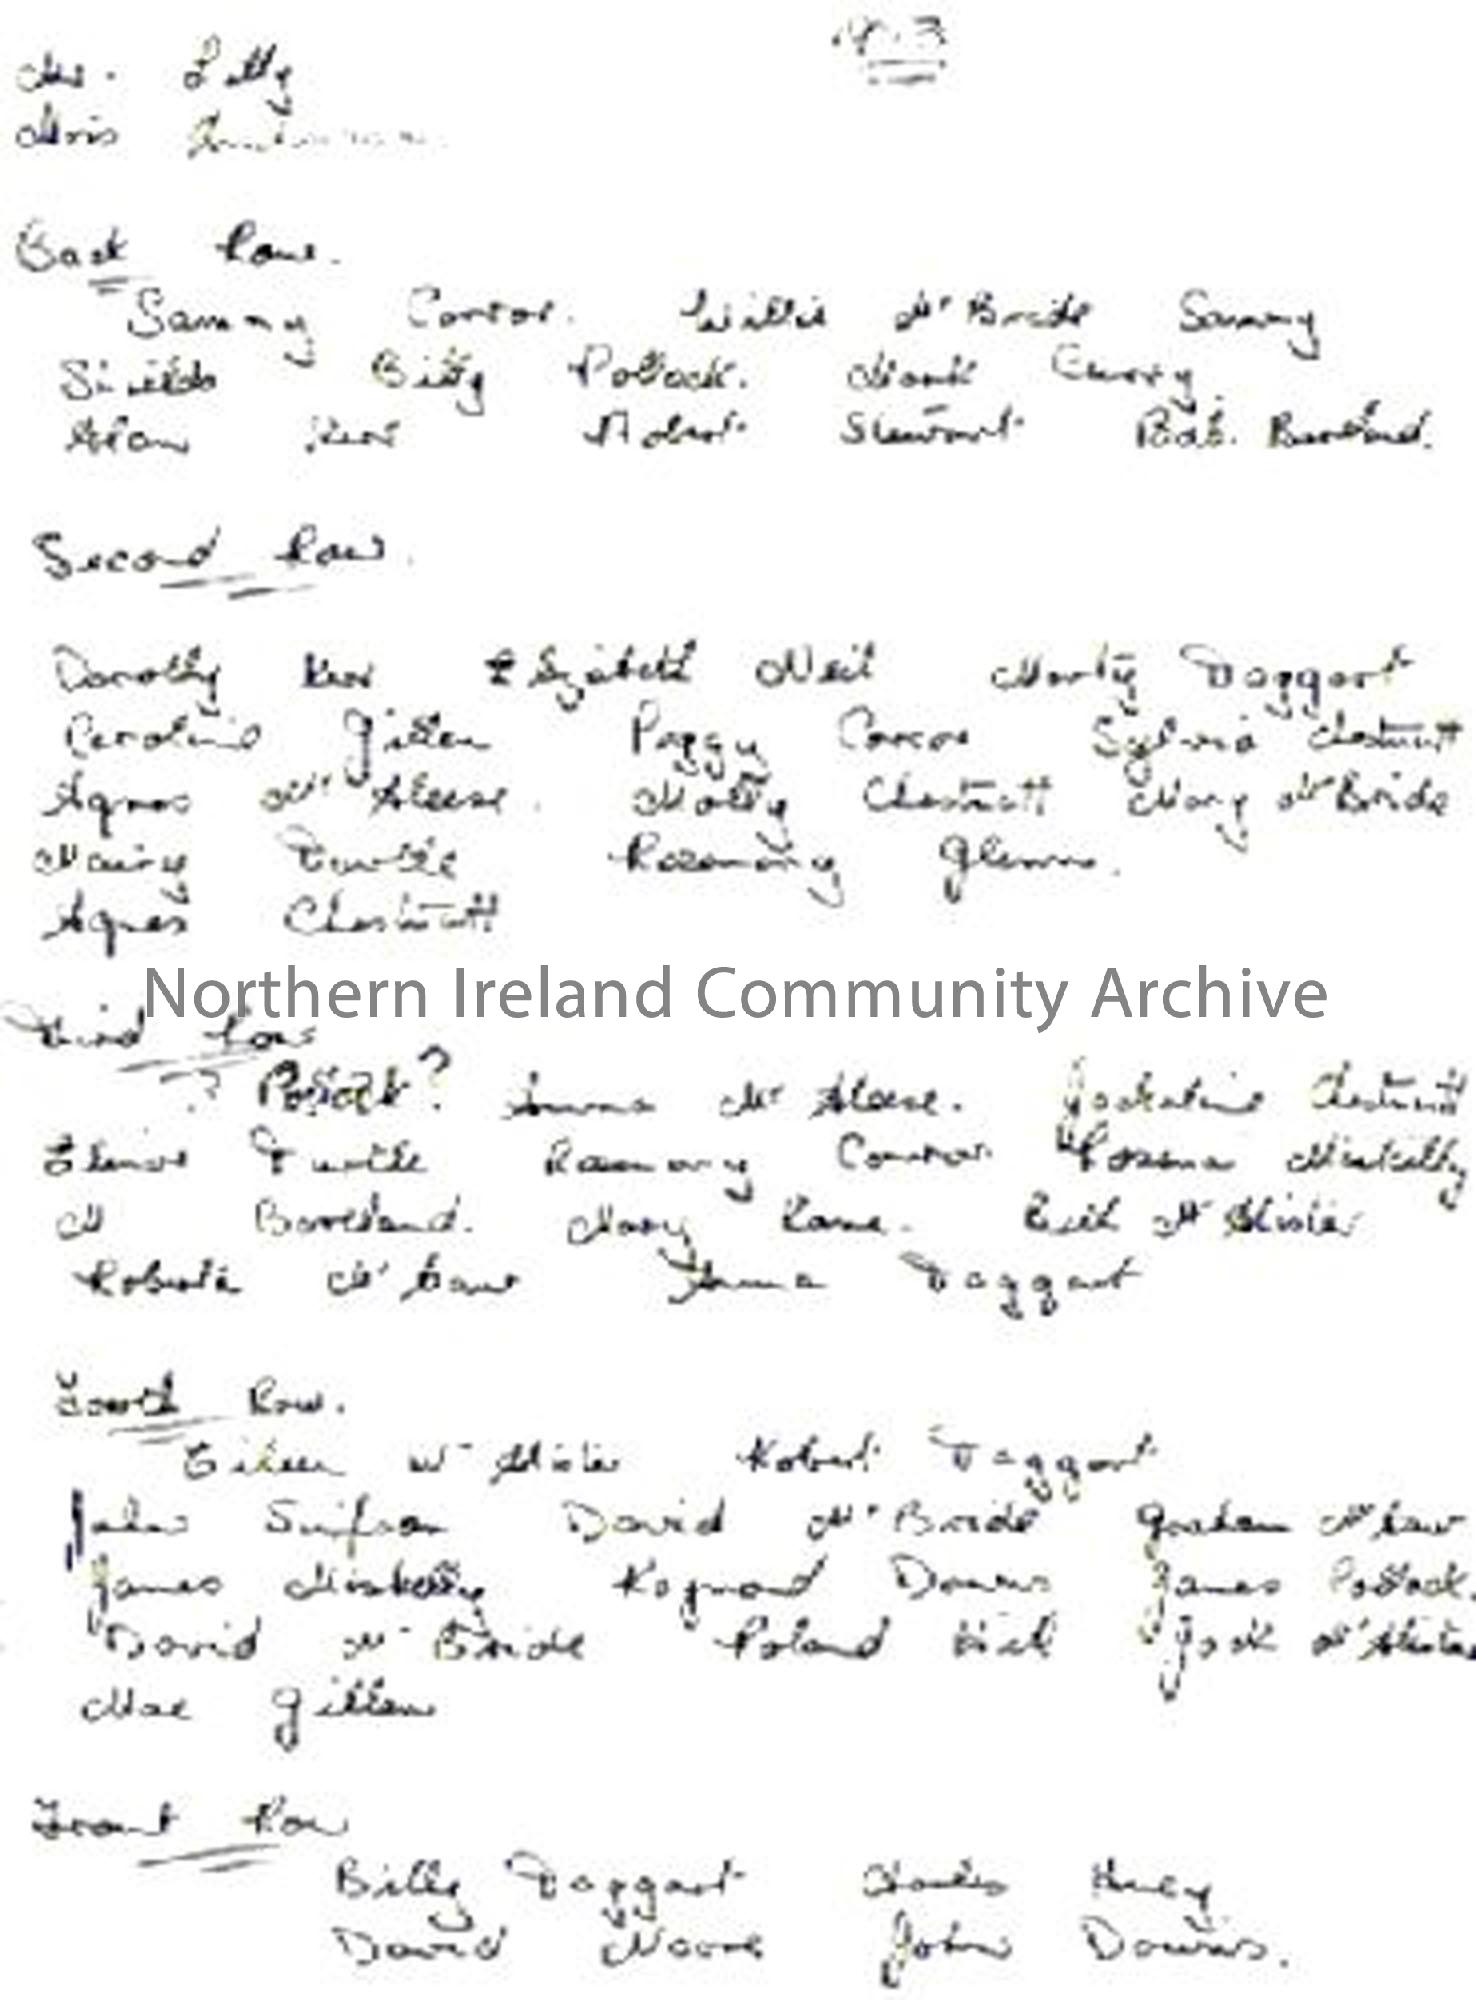 Mr. Lilly
Miss
Back Row.
Sammy Connor. Willie Mc Bride Sammy
Shields Billy Pollock. Mark Curry
Alan Kerr Robert Stewart Rob. Boreland.
Second Row.
Dorothy Kerr Elizabeth Neil Marty Taggart
Caroline Gillen Peggy Connor Sylvia Chestnutt
Agnes Mc Aleese. Molly Chestnutt Mary Mc Bride
Turtle Rosemary Glenn.
Agnes Chestnutt
Northern Ireland Community Archive
Third Row
? Pollock? Anna Mc Aleese. Jackaline Chestnutt
Turtle Rosemary Connor Rosena Miskelly
M Boreland. Mary Kane. Ruth Mc Alister
Roberta Mc Caw Anna Taggart
Fourth Row.
Eileen Mc Alister Robert Taggart
John Simpson David Mc Bride Graham Mc Caw
James Miskelly Raymond Downs James Pollock.
David Mc Bride Roland Jack Mc Alister
Mae Gillen
Front Row
Billy Taggart Charles Huey
David Moore John Downs.